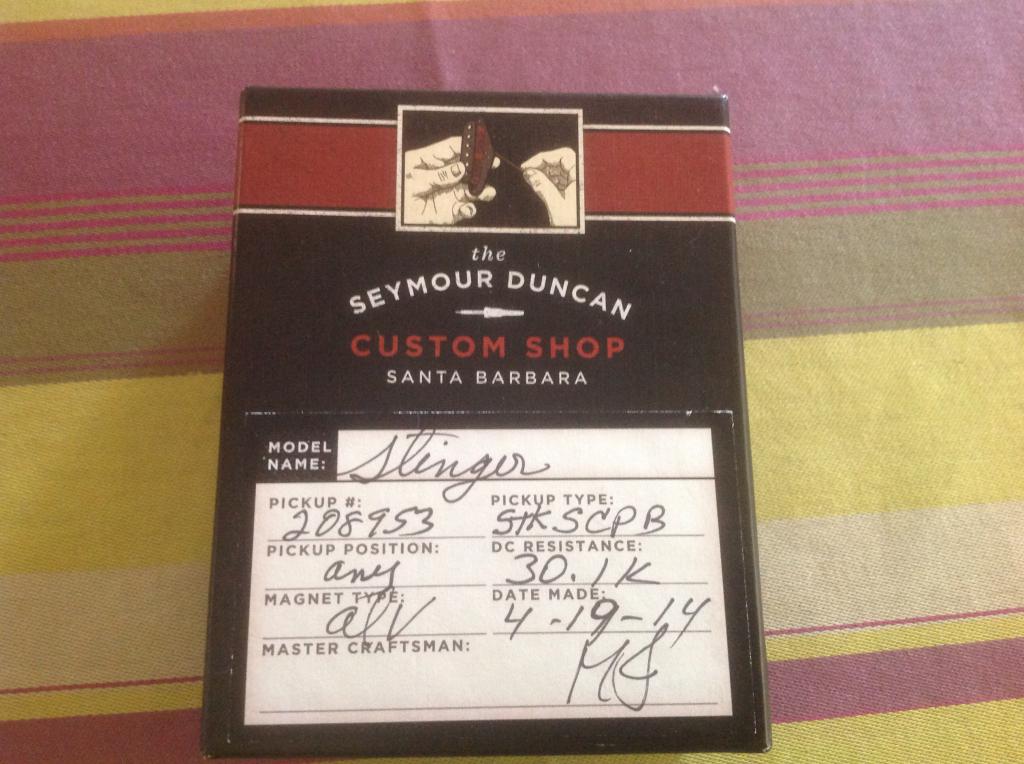 the
SEYMOUR DUNCAN
CUSTOM SHOP
SANTA BARBARA
MODEL NAME: Stinger
PICKUP #: 208953
PICKUP TYPE: STK SCPB
PICKUP POSITION: any
DC RESISTANCE: 30.1K
MAGNET TYPE: alV
DATE MADE: 4-19-14
MASTER CRAFTSMAN: MJ